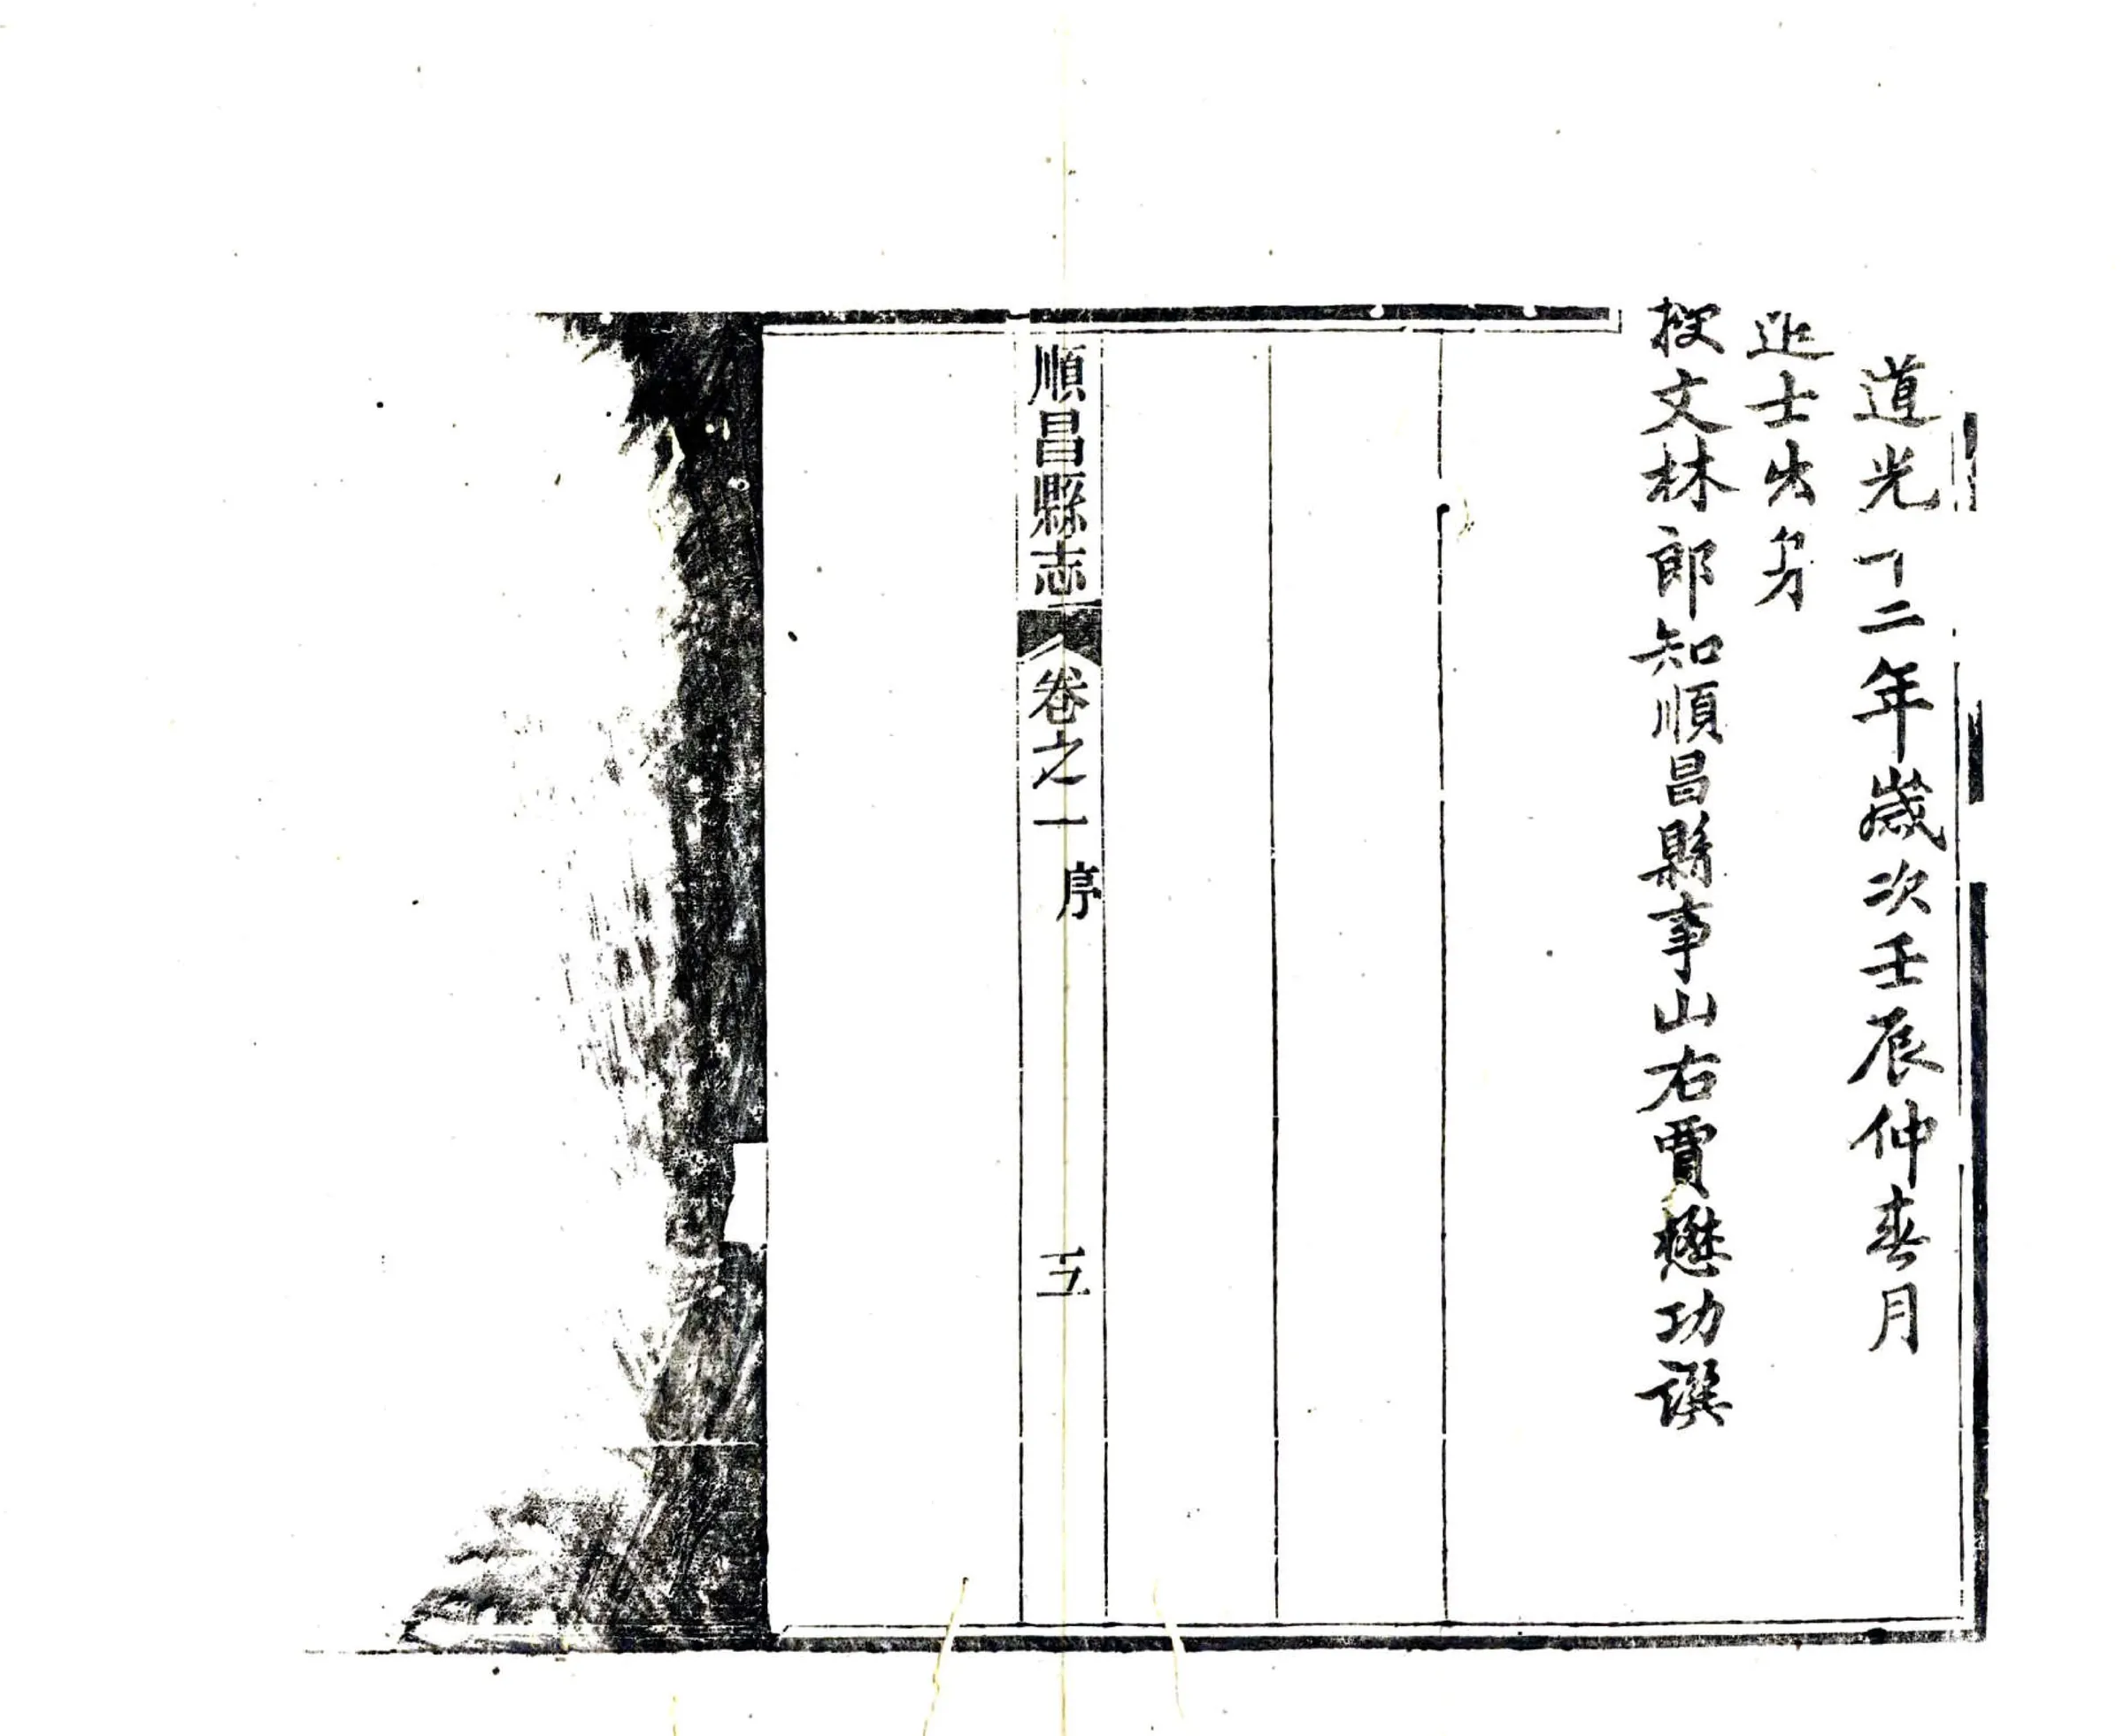 道光十二年歲次壬辰仲春月
進士出身
授文林郎知順昌縣事山右賈懋功譔
順昌縣志
卷之一
序
五